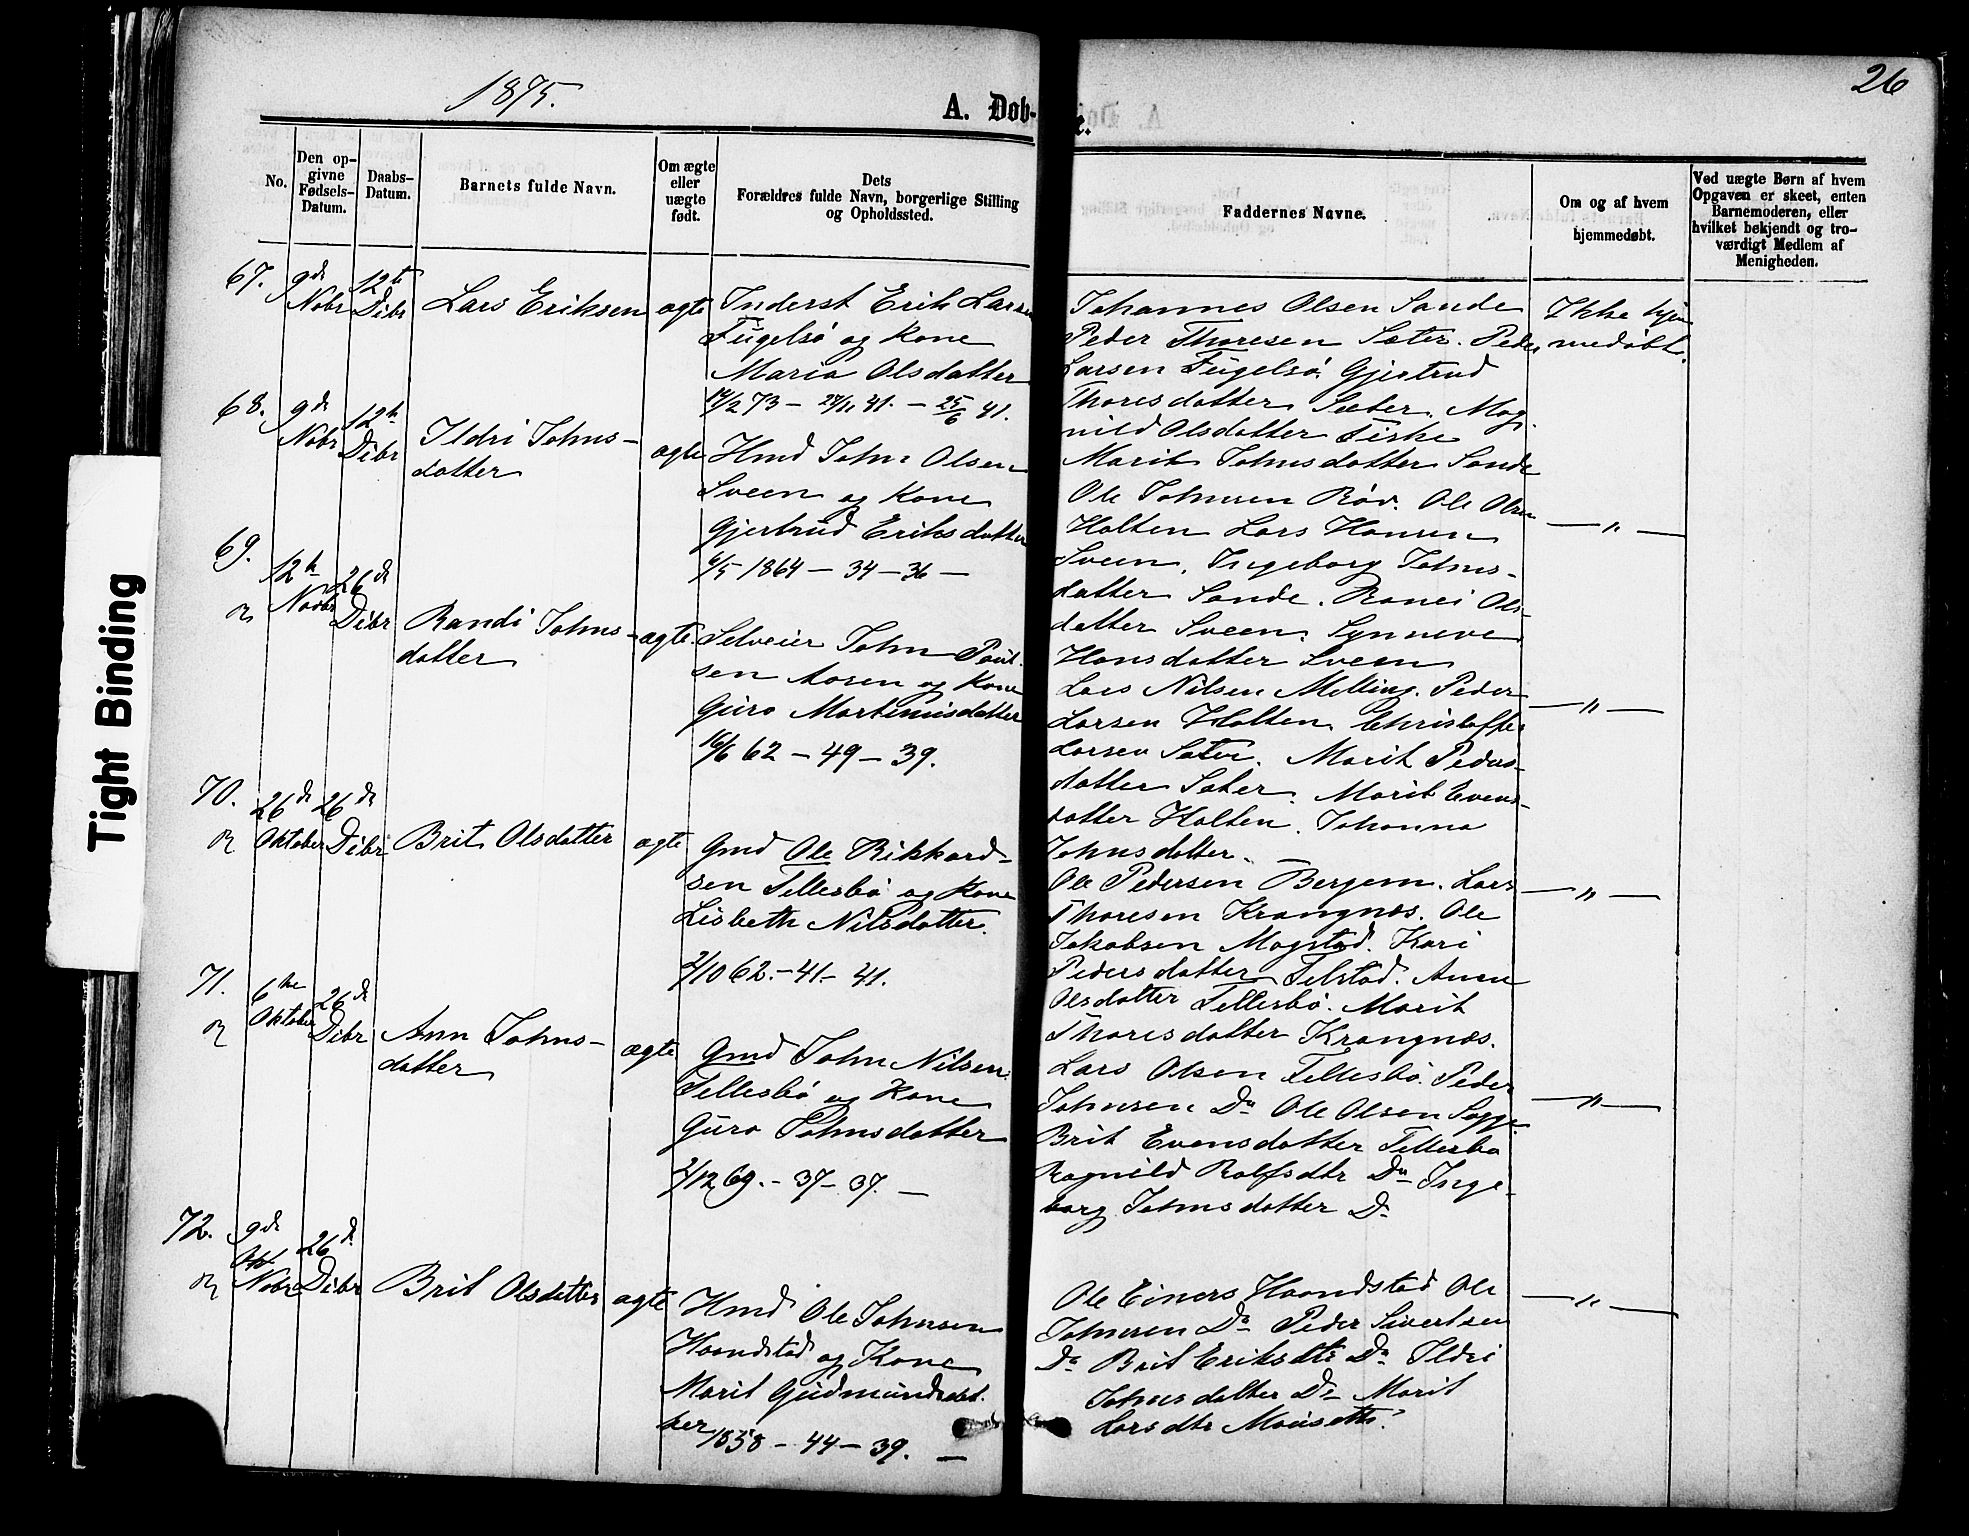 1875.
A. Døb-
e.
26
No.
Den op-
givne
Fødsels-
Datum.
Daabs-
Datum.
Barnets fulde Navn.
Om ægte
eller
uægte
født.
Dets
Forældres fulde Navn, borgerlige Stilling
og Opholdssted.
Faddernes Navne.
Om og af hvem
hjemmedøbt.
Ved uægte Børn af hvem
Opgaven er skeet, enten
Barnemoderen, eller
hvilket bekjendt og tro-
værdigt Medlem af
Menigheden.
67.
9de
Nobr
12te
Dibr
Lars Eriksen
ægte
Inderst Erik Larsen
Fugelsø og Kone
Maria Olsdatter
Johannes Olsen Sande
Peder Thoresen Sæter. Peder
Larsen Fugelsø. Gjertrud
Thoresdatter Sæter. Mag-
nild Olsdatter Fiske
Marit Johnsdatter Sande
Ikke hjem
medøbt.
68.
9de
Nobr
12te
Dibr
Ildri Johns-
datter
ægte
Hmd John Olsen
Sveen og Kone
Gjertrud Eriksdatter
6/5 1864 – 34 – 36 –
Ole Johnsen Rød. Ole Olsen
Holten Lars Hansen
Sveen. Ingeborg Johns-
datter Sande. Ranei Ols-
datter Sveen. Synneve
Hansdatter Sveen
— " —
69.
12te
Novbr
26de
Dibr
Randi Johns-
datter
ægte.
Selveier John Poul-
sen Aasen og Kone
Guro Martinusdatter
16/6 62 – 49 – 39.
Lars Nilsen Melling. Peder
Larsen Holten. Christoffer
Larsen Sæter. Marit Peders-
datter Sæter. Marit Evens-
datter Holten. Johanna
Johnsdatter. —
— " —
70.
26de
Oktober
26de
Dibr
Brit Olsdatter
ægte
Gmd Ole Rikkard-
sen Tellesbø og Kone
Lisbeth Nilsdatter.
2/10 62. – 41. – 41.
Ole Pedersen Bergem. Lars
Thoresen Krangnæs. Ole
Jakobsen Magstad. Kari
Pedersdatter Telstad. Anne
Olsdatter Tellesbø. Marit
Thoresdatter Krangnæs.
— " —
71.
6te
Oktober
26de
Dibr
Ann Johns-
datter
ægte
Gmd John Nilsen
Tellesbø og Kone
Guro Johnsdatter
2/12 69. – 37 – 37. –
Lars Olsen Tellesbø. Peder
Johnsen Do Ole Olsen Sogge
Brit Evensdatter Tellesbø
Ragnild Rolfsdtr Do Inge-
borg Johnsdatter Do
— " —
72.
9de
Nobr
26de
Dibr
Brit Olsdatter
ægte
Hmd Ole Johnsen
Haandstad og Kone
Marit Gudmundsdat-
ter
1858 – 44 – 39. –
Ole Einers Haandstad Ole
Johnsen Do Peder Sivertsen
Do Brit Eriksdtr Do Ildri
Johnsdatter Do Marit
Larsdtr
— " —
Tight Binding